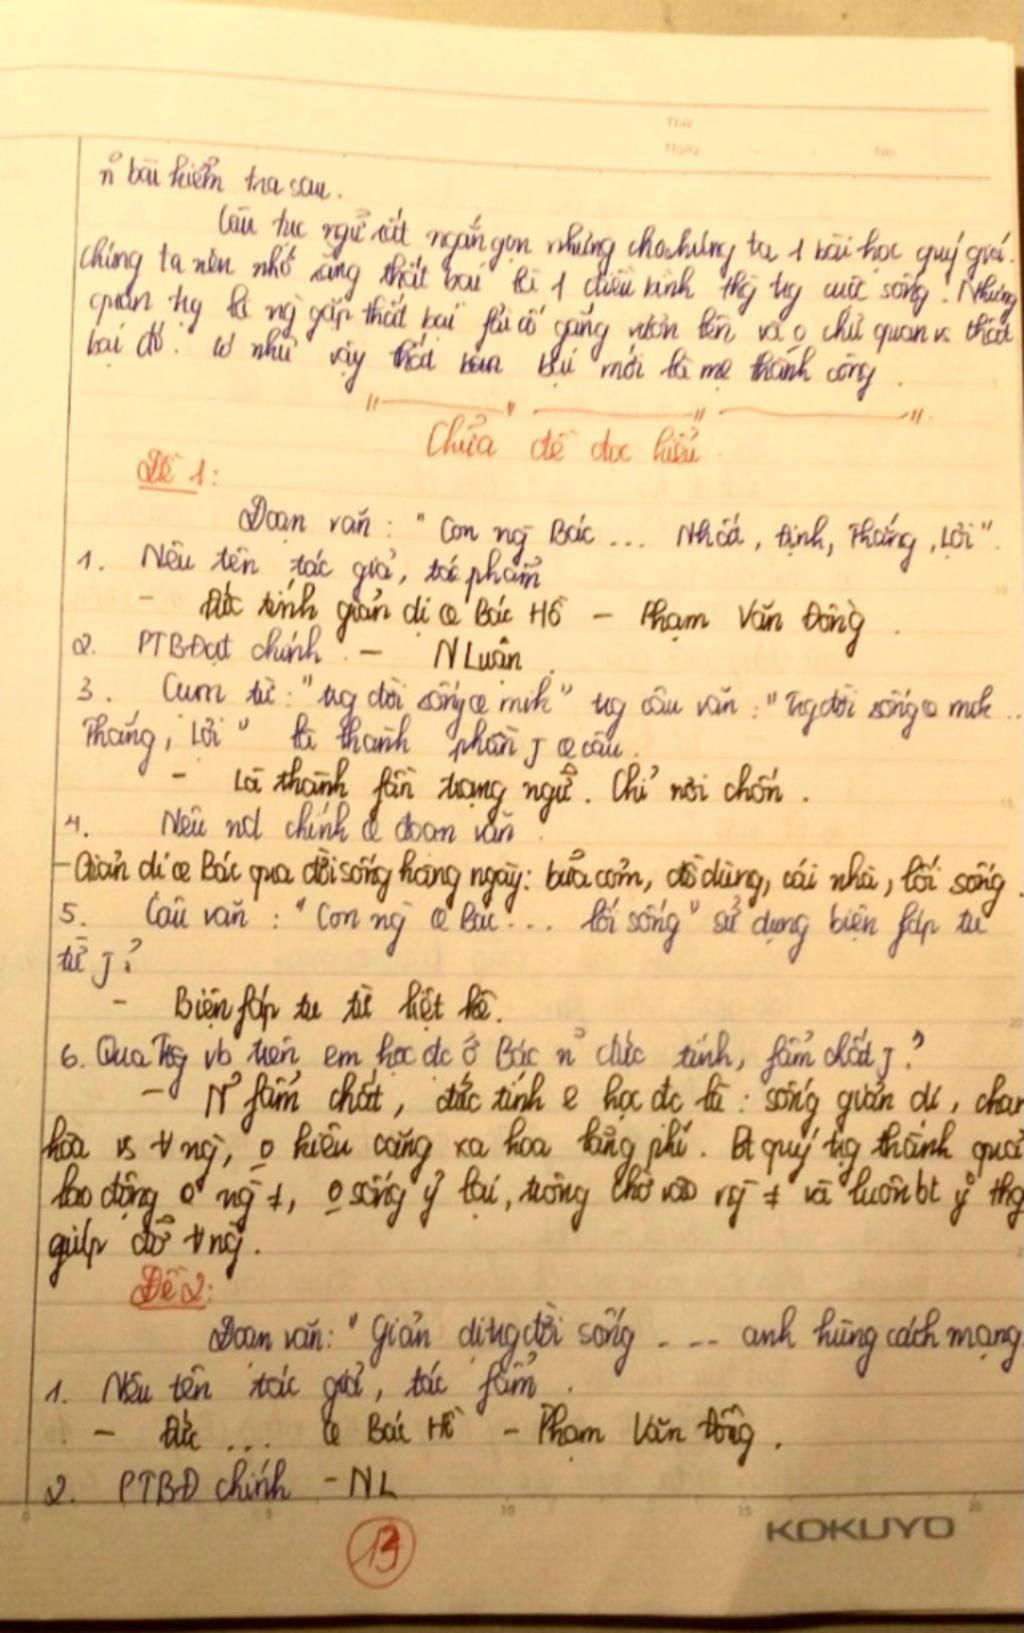 Thứ
Ngày No
n̉ bài kiểm tra sau.
Câu tục ngữ rất ngắn gọn nhưng cho chúng ta 1 bài học quý giá.
chúng ta nên nhớ rằng thất bại là 1 điều bình thg tg cuộc sống! Nhưng
quan tg là ng gặp thất bại fải cố gắng vươn lên và o chủ quan vs thất
bại đó. Có như vậy thất bại mới là mẹ thành công.
Chữa đề đọc hiểu
Đề 1:
Đoạn văn: "Con ng Bác ... Nhất, Định, Thắng, Lợi".
1. Nêu tên tác giả, tác phẩm
- Đức tính giản dị @ Bác Hồ - Phạm Văn Đồng.
2. PTBĐạt chính - N Luận.
3. Cụm từ: "tg đời sống @ mình" tg câu văn: "Tg đời sống @ mình ..
Thắng, Lợi" là thành phần J @ câu.
- Là thành fần trạng ngữ. Chỉ nơi chốn.
4. Nêu nd chính @ đoạn văn
- Giản dị @ Bác qua đời sống hàng ngày: bữa cơm, đồ dùng, cái nhà, lối sống.
5. Câu văn: "Con ng @ Bác ... lối sống" sử dụng biện fáp tu
từ J?
- Biện fáp tu từ liệt kê.
6. Qua vb trên em học đc ở Bác n̉ đức tính, fẩm chất J?
- N̉ fẩm chất, đức tính e học đc là: sống giản dị, chan
hòa vs ∀ ng, o kiêu căng xa hoa lãng phí. Bt quý tg thành quả
lao động @ ng ≠, o sống ỷ lại, trông chờ vào ng ≠ và luôn bt y thg
giúp đỡ ∀ ng.
Đề 2:
Đoạn văn: "Giản dị tg đời sống .... anh hùng cách mạng
1. Nêu tên tác giả, tác fẩm.
- Đức ... @ Bác Hồ - Phạm Văn Đồng.
2. PTBĐ chính - NL
0 5 10 15 20
KOKUYO